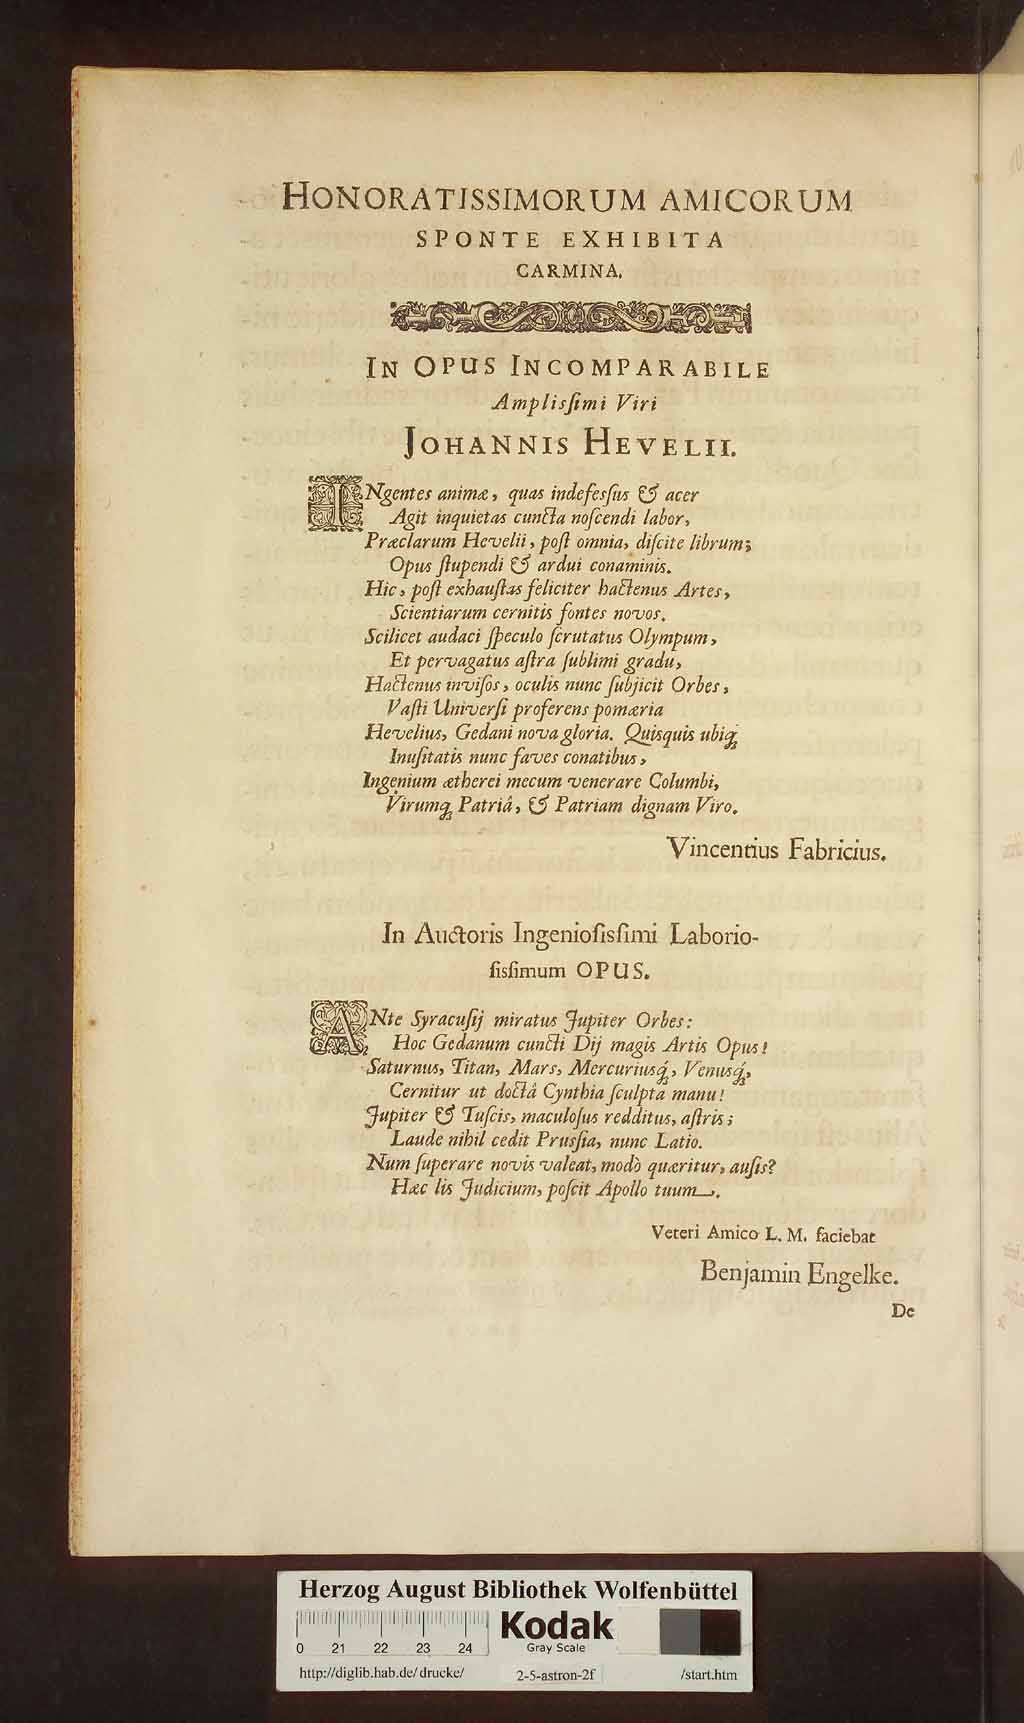 HONORATISSIMORUM AMICORUM
SPONTE EXHIBITA
CARMINA.
IN OPUS INCOMPARABILE
Amplisſimi Viri
JOHANNIS HEVELII.
INgentes animæ, quas indefesſus & acer
Agit inquietas cuncta noſcendi labor,
Præclarum Hevelii, poſt omnia, diſcite librum;
Opus ſtupendi & ardui conaminis.
Hic, poſt exhauſtas feliciter hactenus Artes,
Scientiarum cernitis fontes novos.
Scilicet audaci ſpeculo ſcrutatus Olympum,
Et pervagatus aſtra ſublimi gradu,
Hactenus inviſos, oculis nunc ſubjicit Orbes,
Vaſti Univerſi proferens pomæria
Hevelius, Gedani nova gloria. Quisquis ubiq;
Inuſitatis nunc faves conatibus,
Ingenium ætherei mecum venerare Columbi,
Virumq; Patriâ, & Patriam dignam Viro.
Vincentius Fabricius.
In Auctoris Ingenioſisſimi Laborio-
ſisſimum OPUS.
ANte Syracuſij miratus Jupiter Orbes:
Hoc Gedanum cuncti Dij magis Artis Opus!
Saturnus, Titan, Mars, Mercuriusq́;, Venusq́;,
Cernitur ut doctâ Cynthia ſculpta manu!
Jupiter & Tuſcis, maculoſus redditus, aſtris;
Laude nihil cedit Prusſia, nunc Latio.
Num ſuperare novis valeat, modò quæritur, auſis?
Hæc lis Judicium, poſcit Apollo tuum.
Veteri Amico L. M. faciebat
Benjamin Engelke.
De
Herzog August Bibliothek Wolfenbüttel
0 21 22 23 24
Kodak
Gray Scale
http://diglib.hab.de/drucke/ 2-5-astron-2f /start.htm